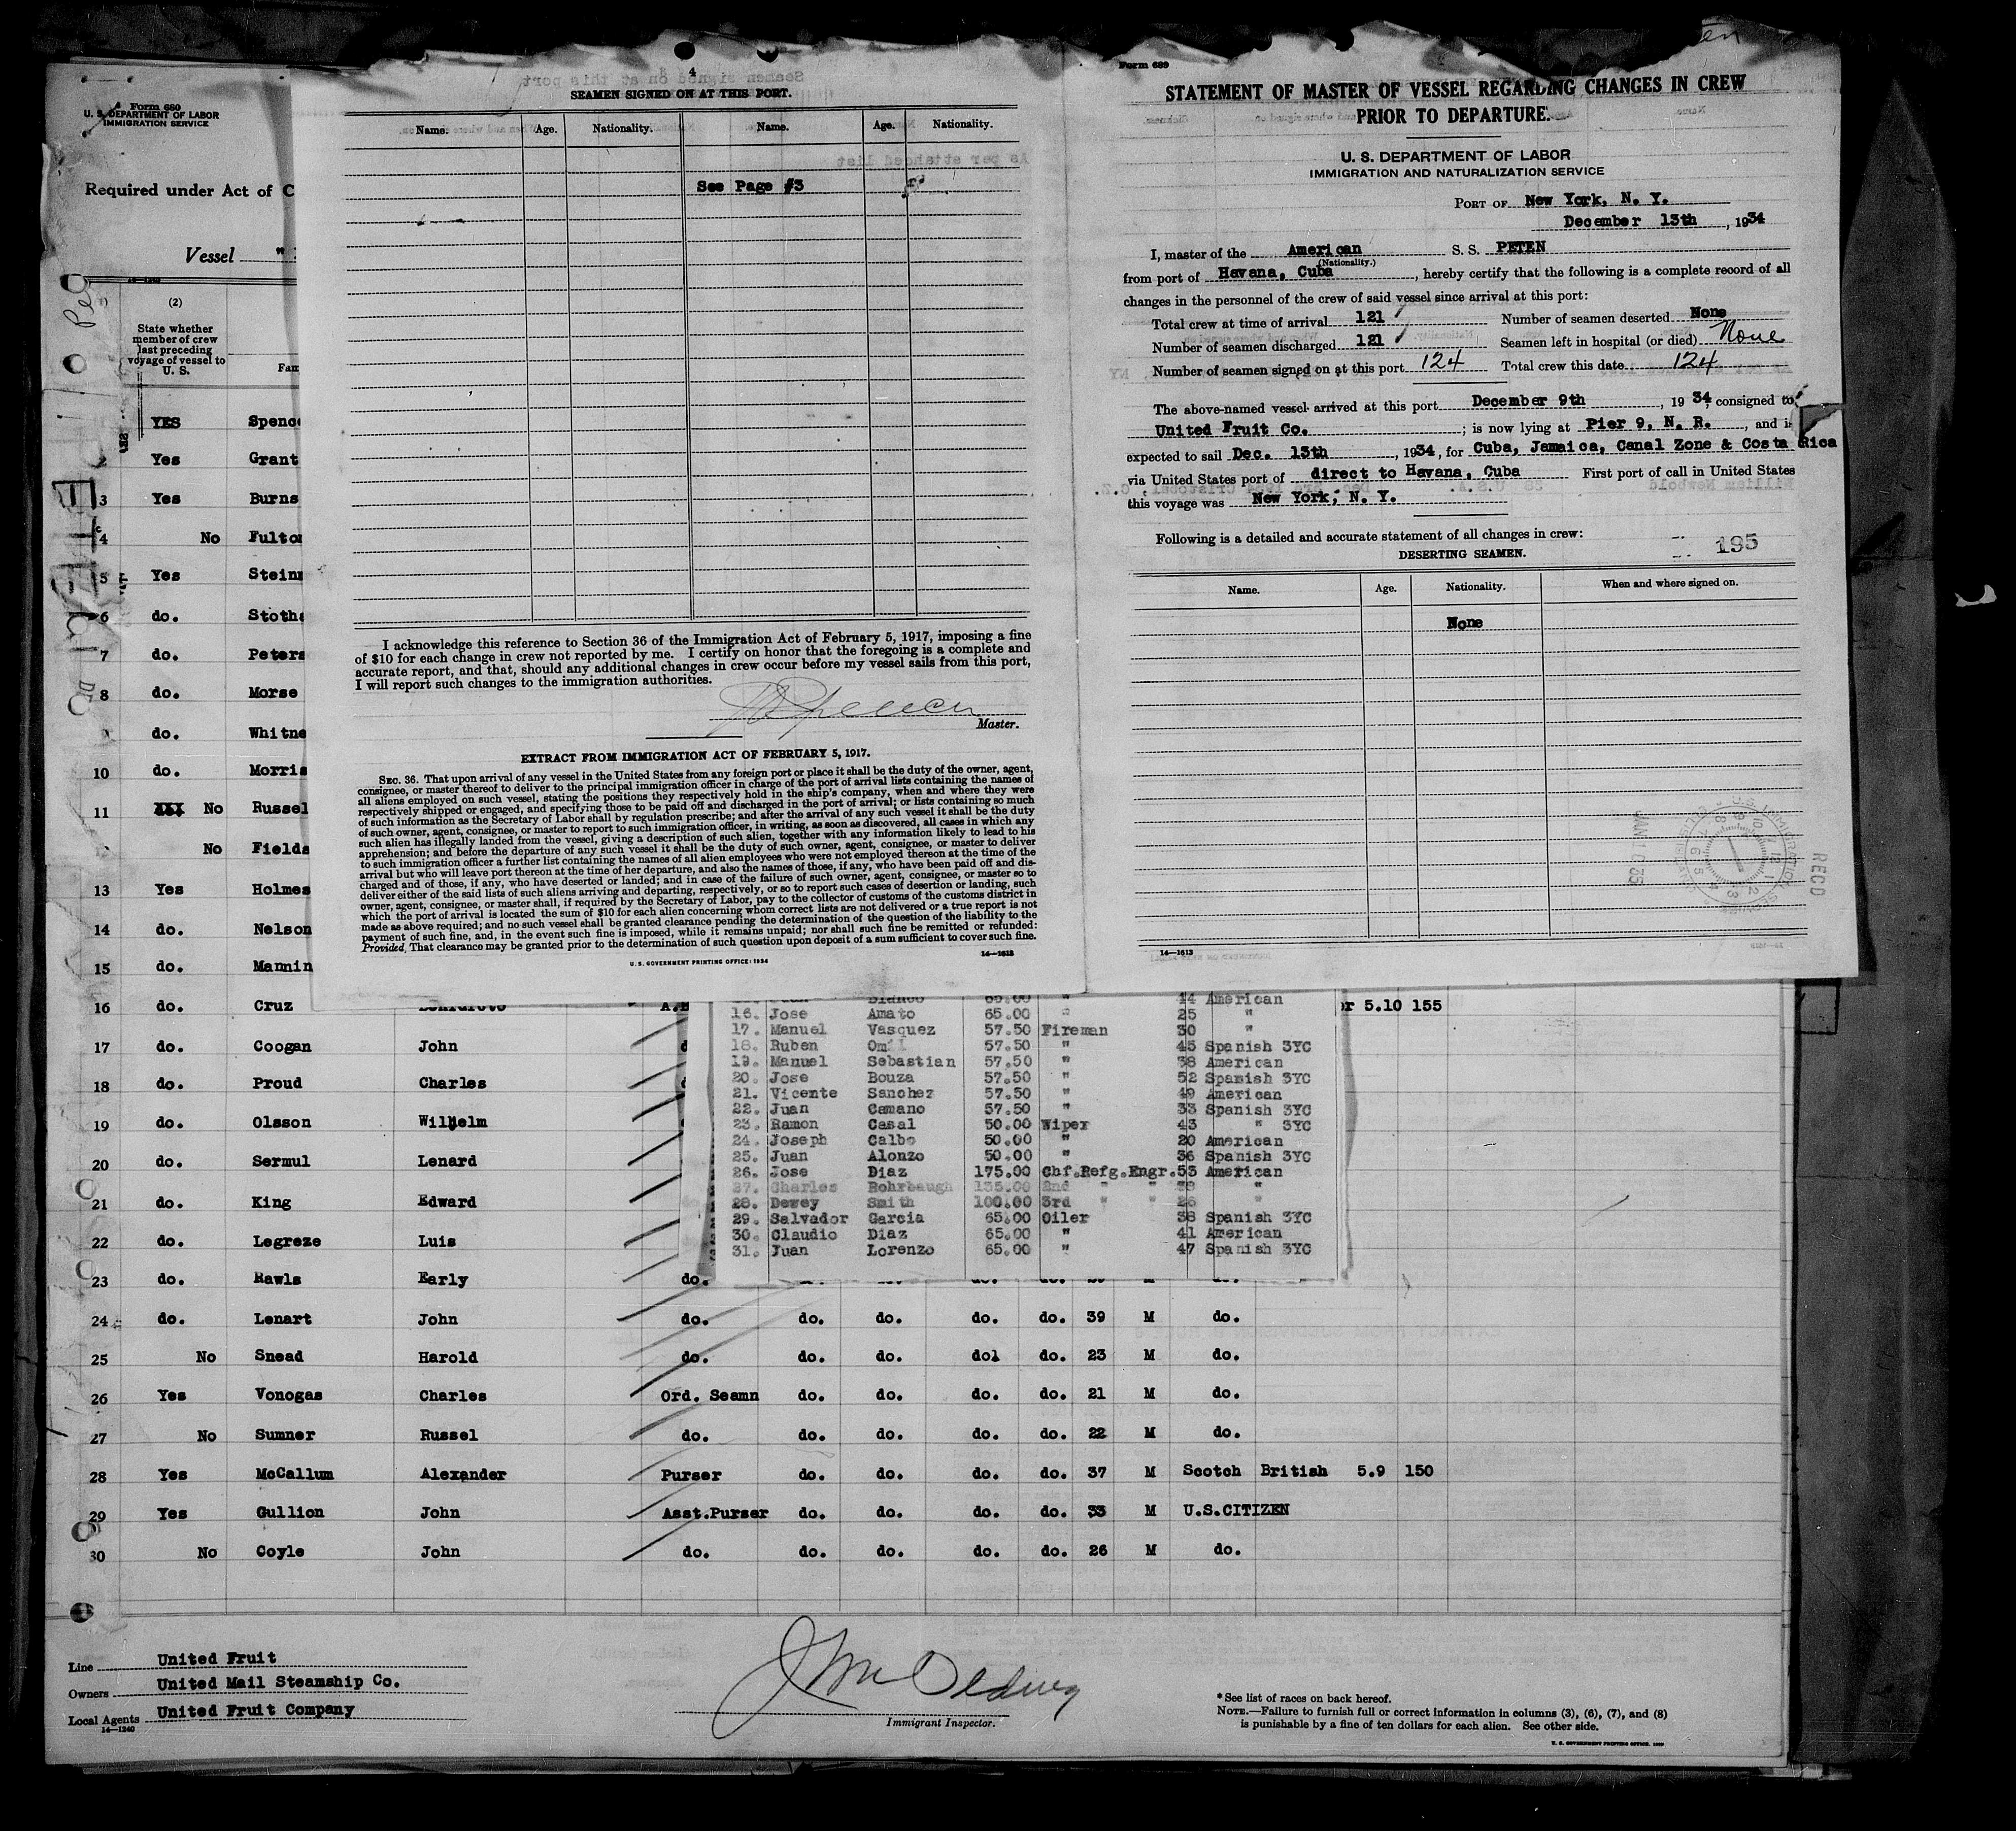 4
SEAMEN SIGNED ON AT THIS PORT.
Name. Age. Nationality. Name. Age. Nationality.
See Page #3
I acknowledge this reference to Section 36 of the Immigration Act of February 5, 1917, imposing a fine
of $10 for each change in crew not reported by me. I certify on honor that the foregoing is a complete and
accurate report, and that, should any additional changes in crew occur before my vessel sails from this port,
I will report such changes to the immigration authorities.
Master.
EXTRACT FROM IMMIGRATION ACT OF FEBRUARY 5, 1917.
SEC. 36. That upon arrival of any vessel in the United States from any foreign port or place it shall be the duty of the owner, agent,
consignee, or master thereof to deliver to the principal immigration officer in charge of the port of arrival lists containing the names of
all aliens employed on such vessel, stating the positions they respectively hold in the ship's company, when and where they were
respectively shipped or engaged, and specifying those to be paid off and discharged in the port of arrival; or lists containing so much
of such information as the Secretary of Labor shall by regulation prescribe; and after the arrival of any such vessel it shall be the duty
of such owner, agent, consignee, or master to report to such immigration officer, in writing, as soon as discovered, all cases in which any
such alien has illegally landed from the vessel, giving a description of such alien, together with any information likely to lead to his
apprehension; and before the departure of any such vessel it shall be the duty of such owner, agent, consignee, or master to deliver
to such immigration officer a further list containing the names of all alien employees who were not employed thereon at the time of the
arrival but who will leave port thereon at the time of her departure, and also the names of those, if any, who have been paid off and dis-
charged and of those, if any, who have deserted or landed; and in case of the failure of such owner, agent, consignee, or master so to
deliver either of the said lists of such aliens arriving and departing, respectively, or so to report such cases of desertion or landing, such
owner, agent, consignee, or master shall, if required by the Secretary of Labor, pay to the collector of customs of the customs district in
which the port of arrival is located the sum of $10 for each alien concerning whom correct lists are not delivered or a true report is not
made as above required; and no such vessel shall be granted clearance pending the determination of the question of the liability to the
payment of such fine, and, in the event such fine is imposed, while it remains unpaid; nor shall such fine be remitted or refunded:
Provided, That clearance may be granted prior to the determination of such question upon deposit of a sum sufficient to cover such fine.
U. S. GOVERNMENT PRINTING OFFICE: 1934 14—1613
Form 689
STATEMENT OF MASTER OF VESSEL REGARDING CHANGES IN CREW
PRIOR TO DEPARTURE.
U. S. DEPARTMENT OF LABOR
IMMIGRATION AND NATURALIZATION SERVICE
PORT OF New York, N. Y.
December 13th, 1934
I, master of the American S. S. PETEN
(Nationality.)
from port of Havana, Cuba, hereby certify that the following is a complete record of all
changes in the personnel of the crew of said vessel since arrival at this port:
Total crew at time of arrival 121 Number of seamen deserted None
Number of seamen discharged 121 Seamen left in hospital (or died) None
Number of seamen signed on at this port 124 Total crew this date 124
The above-named vessel arrived at this port December 9th, 1934, consigned to
United Fruit Co.; is now lying at Pier 9, N. R., and is
expected to sail Dec. 13th, 1934, for Cuba, Jamaica, Canal Zone & Costa Rica
via United States port of direct to Havana, Cuba First port of call in United States
this voyage was New York, N. Y.
Following is a detailed and accurate statement of all changes in crew:
195
DESERTING SEAMEN.
Name. Age. Nationality. When and where signed on.
None
RECD
14—1613
Form 680
U. S. DEPARTMENT OF LABOR
IMMIGRATION SERVICE
Required under Act of C
Vessel "
14—1240
(2)
State whether
member of crew
last preceding
voyage of vessel to
U. S.
Fam
YES Spence
2 Yes Grant
3 Yes Burns
4 No Fulton
5 Yes Steinm
6 do. Stotha
7 do. Peters
8 do. Morse
do. Whitne
10 do. Morris
11 No Russel
No Fields
13 Yes Holmes
14 do. Nelson
15 do. Mannin
16 do. Cruz 5.10 155
17 do. Coogan John
18 do. Proud Charles
19 do. Olsson Wilhelm
20 do. Sermul Lenard
21 do. King Edward
22 do. Legreze Luis
23 do. Rawls Early do.
24 do. Lenart John do. do. do. do. do. 39 M do.
25 No Snead Harold do. do. do. dol do. 23 M do.
26 Yes Vonogas Charles Ord. Seamn do. do. do. do. 21 M do.
27 No Sumner Russel do. do. do. do. do. 22 M do.
28 Yes McCallum Alexander Purser do. do. do. do. 37 M Scotch British 5.9 150
29 Yes Gullion John Asst.Purser do. do. do. do. 33 M U.S.CITIZEN
30 No Coyle John do. do. do. do. do. 26 M do.
Blanco 65.00 " 44 American
16. Jose Amato 65.00 " 25 "
17. Manuel Vasquez 57.50 Fireman 30 "
18. Ruben 57.50 " 45 Spanish 3YC
19. Manuel Sebastian 57.50 " 38 American
20. Jose Bouza 57.50 " 52 Spanish 3YC
21. Vicente Sanchez 57.50 " 49 American
22. Juan Camano 57.50 " 33 Spanish 3YC
23. Ramon Casal 50.00 Wiper 43 " 3YC
24. Joseph Calbo 50.00 " 20 American
25. Juan Alonzo 50.00 " 36 Spanish 3YC
26. Jose Diaz 175.00 Chf.Refg.Engr. 53 American
27. Charles Rohrbaugh 135.00 2nd " " 39 "
28. Dewey Smith 100.00 3rd " " 26 "
29. Salvador Garcia 65.00 Oiler 38 Spanish 3YC
30. Claudio Diaz 65.00 " 41 American
31. Juan Lorenzo 65.00 " 47 Spanish 3YC
Line United Fruit
Owners United Mail Steamship Co.
Local Agents United Fruit Company
14—1240
Immigrant Inspector.
*See list of races on back hereof.
NOTE.—Failure to furnish full or correct information in columns (3), (6), (7), and (8)
is punishable by a fine of ten dollars for each alien. See other side.